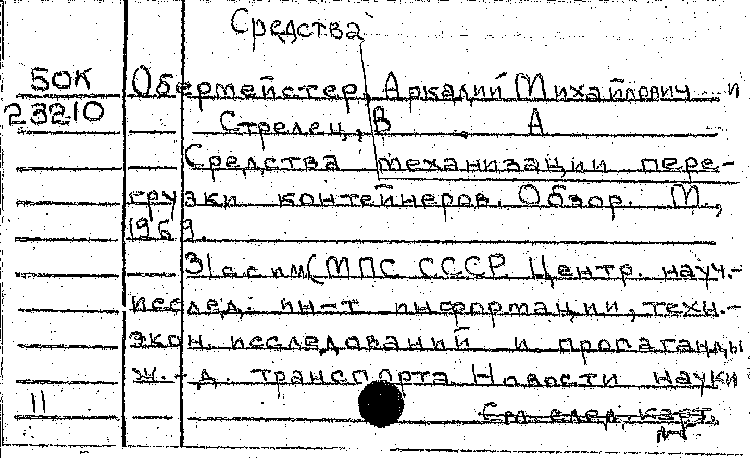 Средства
50К Обермейстер, Аркадий Михайлович и
23210 Стрелец, В. А
Средства механизации пере-
грузки контейнеров. Обзор. М.,
1969.
31с с ил (МПС СССР. Центр. науч.-
исслед. ин-т информации, техн.-
экон. исследований и пропаганды
ж.-д. транспорта. Новости науки
11 См. след. карт.